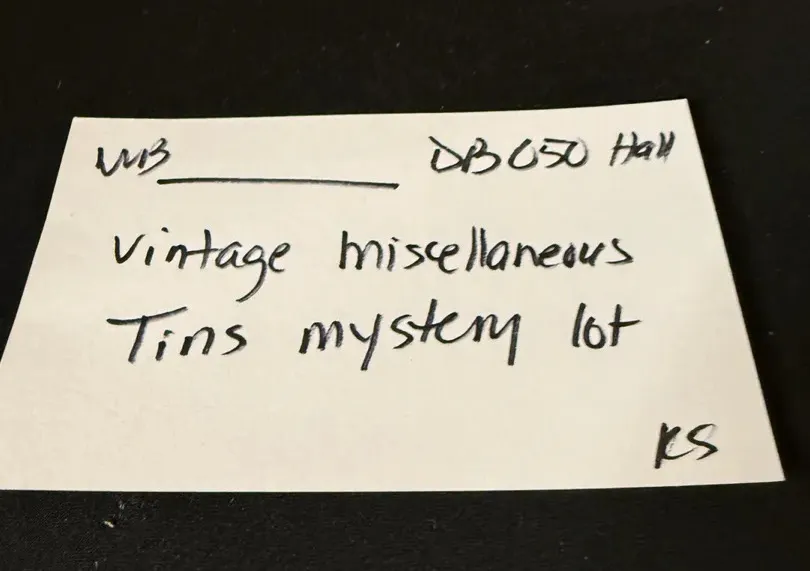 WB__________ DB050 Hall
Vintage miscellaneous
Tins mystery lot
KS